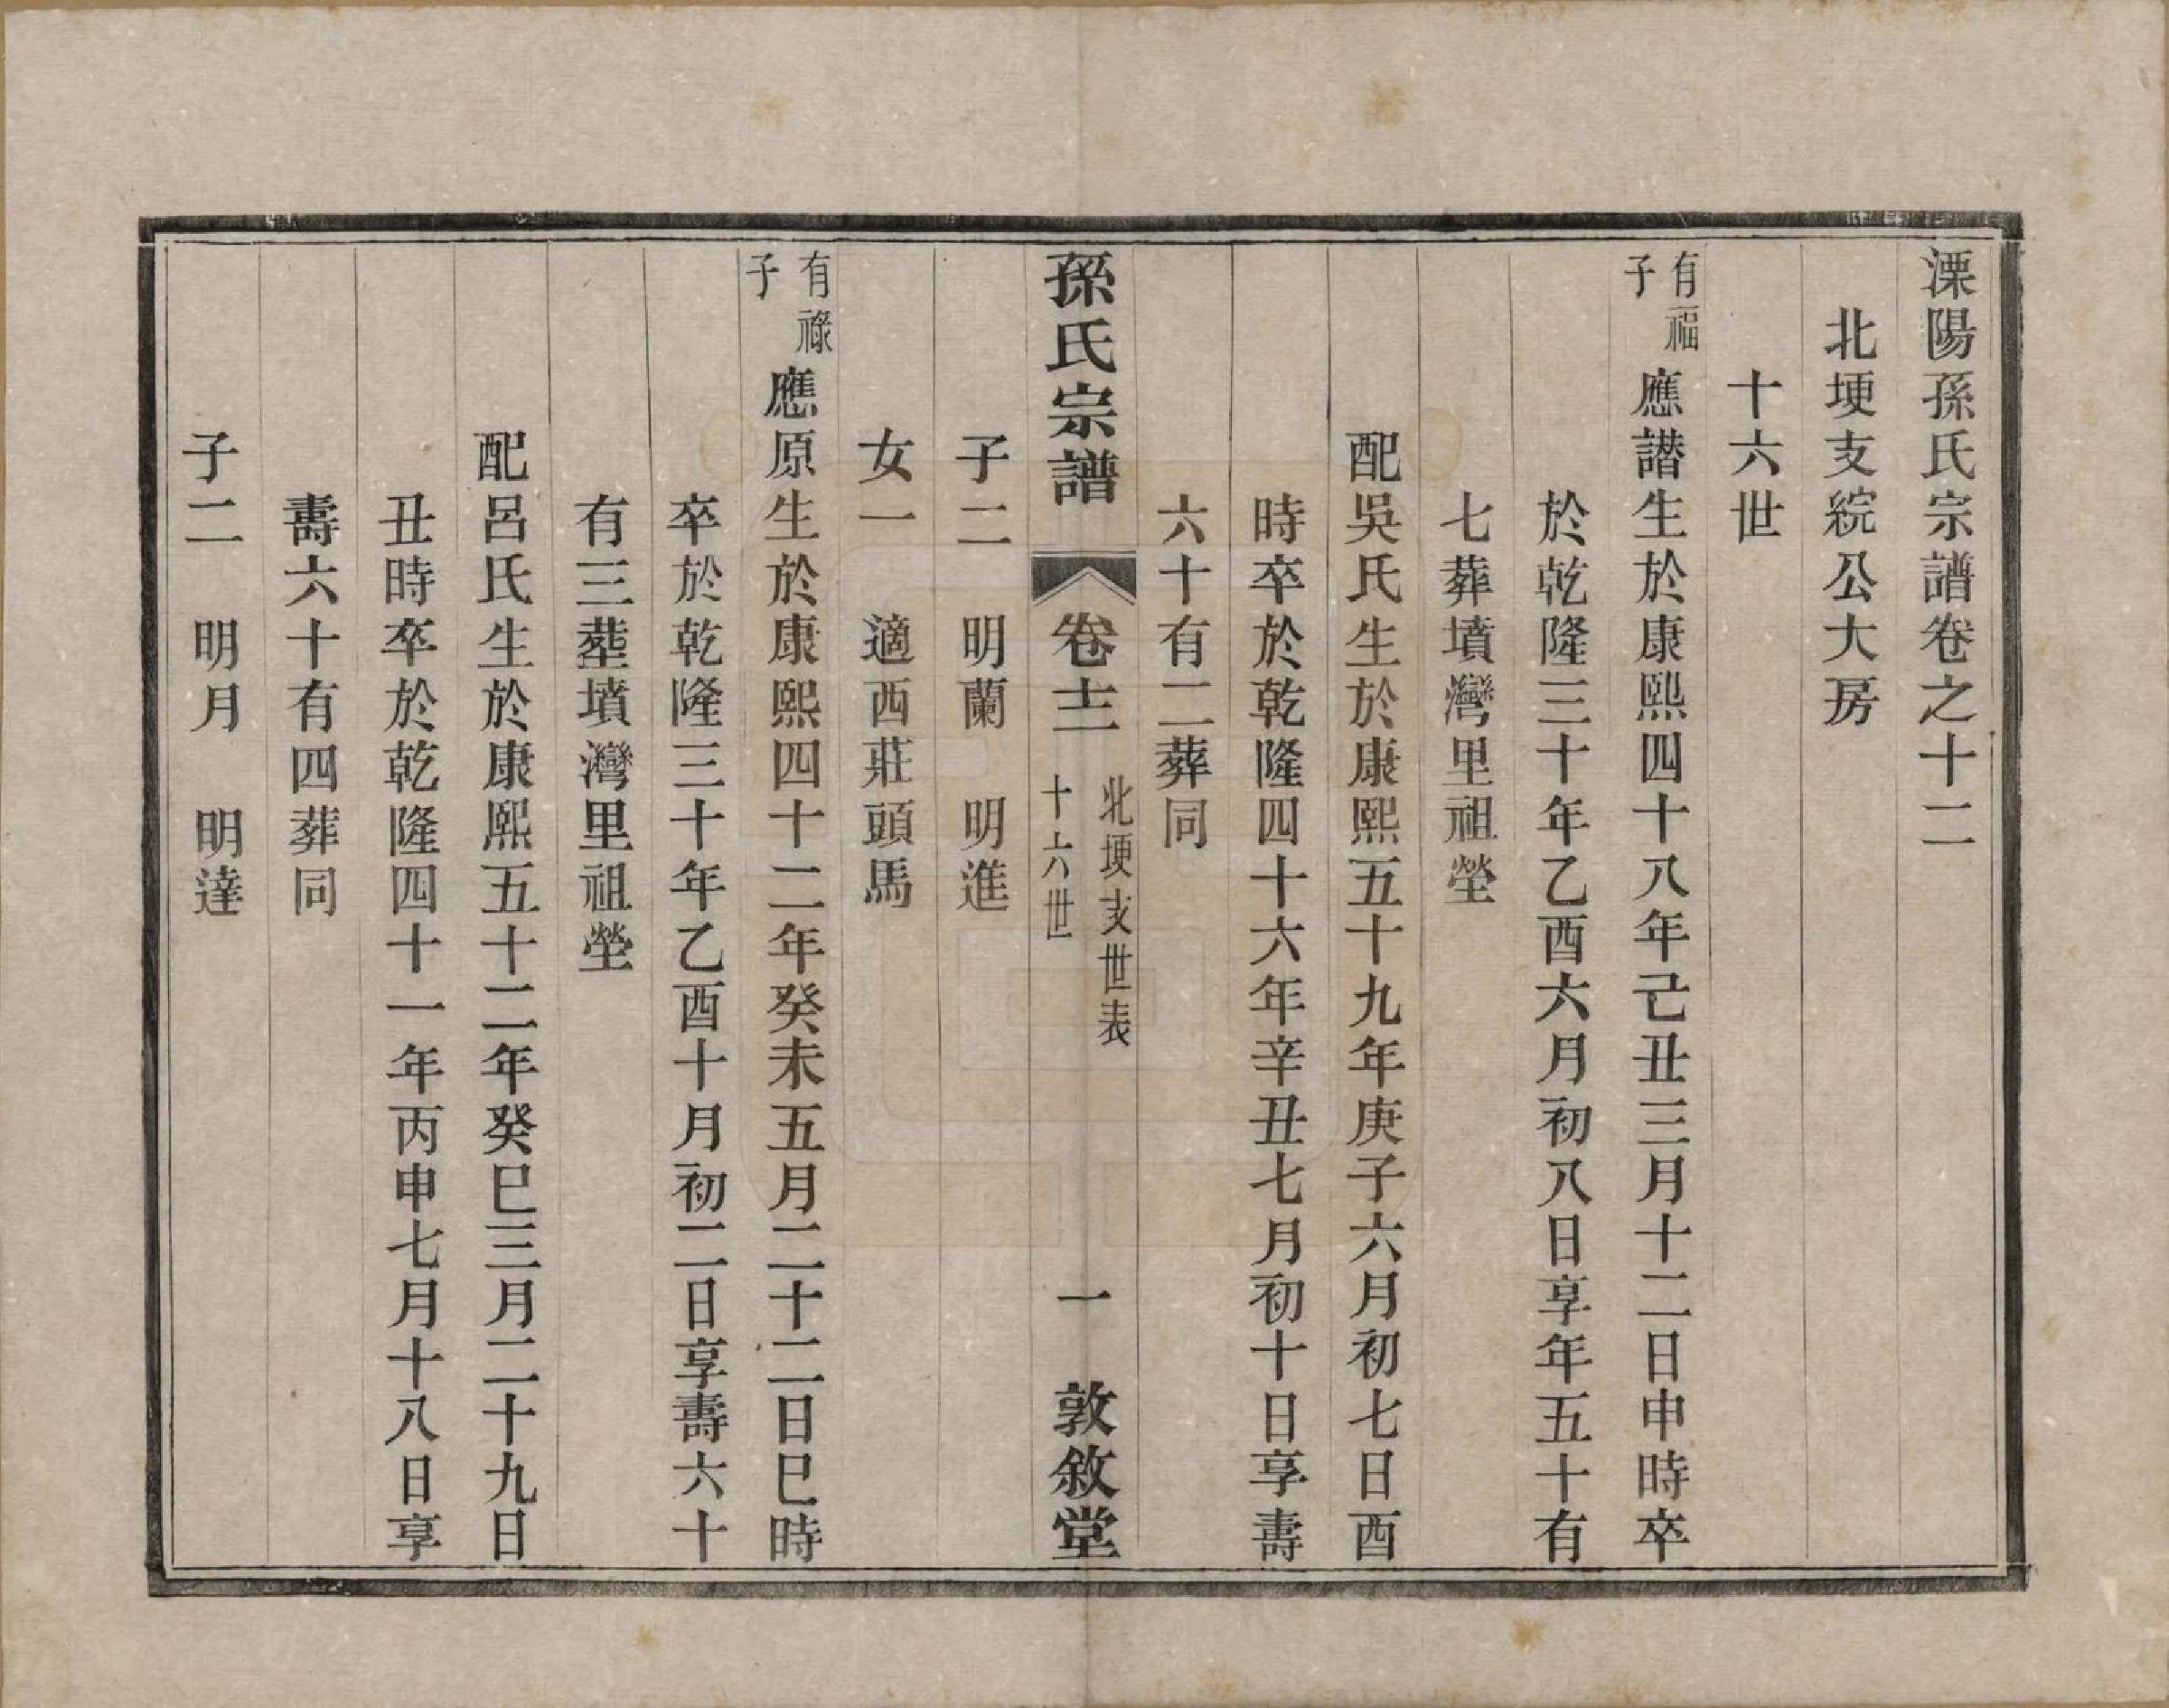 溧陽孫氏宗譜卷之十二
北埂支綻公大房
十六世
有福子 應譛生於康熙四十八年己丑三月十二日申時卒
於乾隆三十年乙酉六月初八日享年五十有
七葬墳灣里祖塋
配吳氏生於康熙五十九年庚子六月初七日酉
時卒於乾隆四十六年辛丑七月初十日享壽
六十有二葬同
孫氏宗譜 卷十二 北埂支世表 十六世 一 敦敘堂
子二 明蘭 明進
女一 適西莊頭馬
有祿子 應原生於康熙四十二年癸未五月二十二日巳時
卒於乾隆三十年乙酉十月初二日享壽六十
有三塟墳灣里祖塋
配呂氏生於康熙五十二年癸巳三月二十九日
丑時卒於乾隆四十一年丙申七月十八日享
壽六十有四葬同
子二 明月 明達